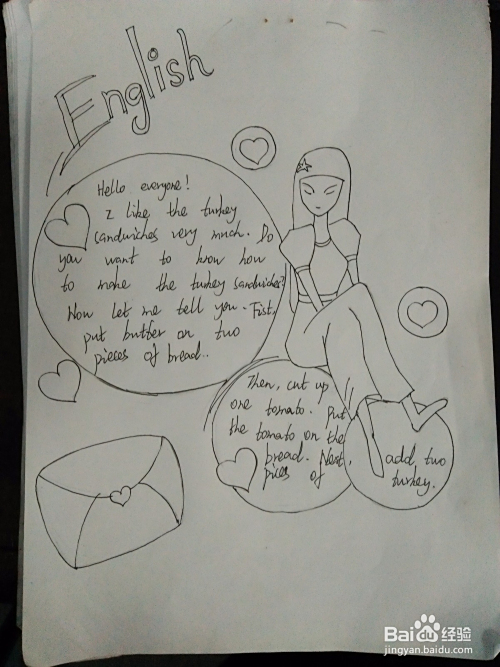 English
Hello everyone!
I like the turkey
sandwiches very much. Do
you want to know how
to make the turkey sandwiches?
Now let me tell you. Fist,
put butter on two
pieces of bread..
Then, cut up
one tomato. Put
the tomato on the
bread. Next,
pices of
add two
turkey.
Baidu经验
jingyan.baidu.com